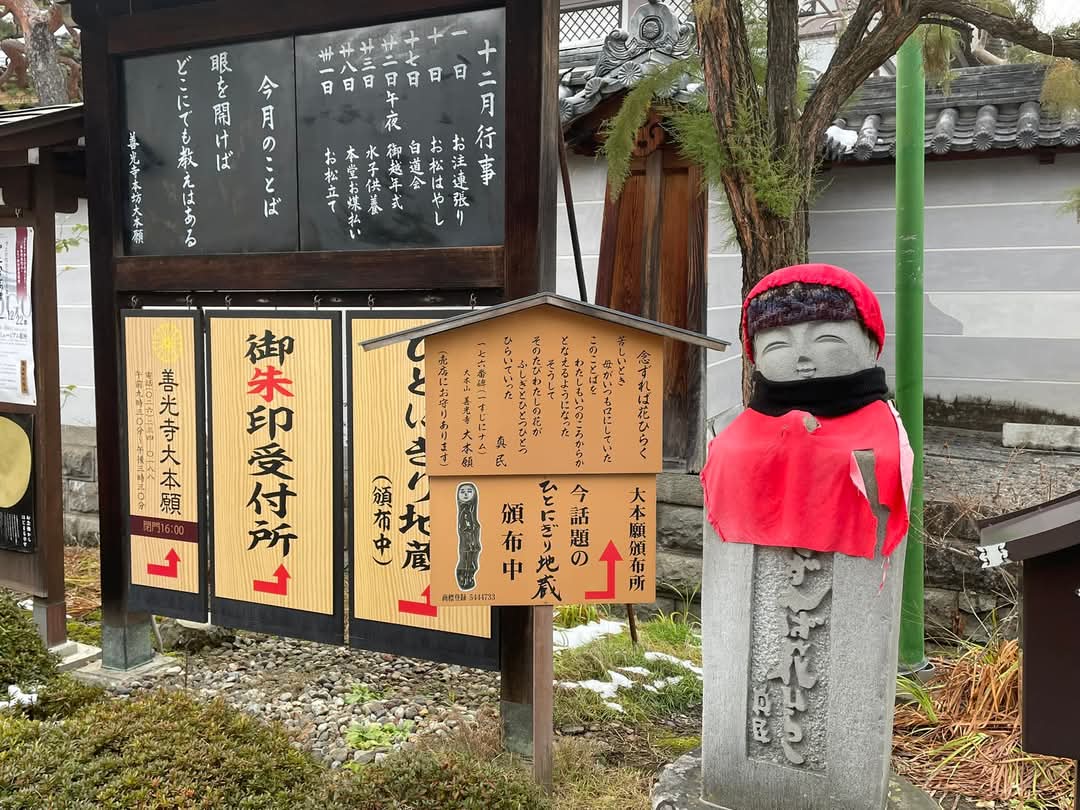 十二月行事
一日 お注連張り
十日 お松はやし
十七日 白道会
廿二日午夜 御越年式
廿三日 水子供養
廿八日 本堂お煤払い
卅一日 お松立て
今月のことば
眼を開けば
どこにでも教えはある
善光寺本坊大本願
善光寺大本願
閉門16:00
御朱印受付所
ひとにぎり地蔵
(頒布中)
念ずれば花ひらく
苦しいとき
母がいつも口にしていた
このことばを
わたしもいつのころからか
となえるようになった
そうして
そのたびわたしの花が
ふしぎとひとつひとつ
ひらいていった
真民
一七六番碑(一すじにナム)
大本山 善光寺 大本願
(売店にお守りあります)
大本願頒布所
今話題の
ひとにぎり地蔵
頒布中
商標登録 5444733
真民